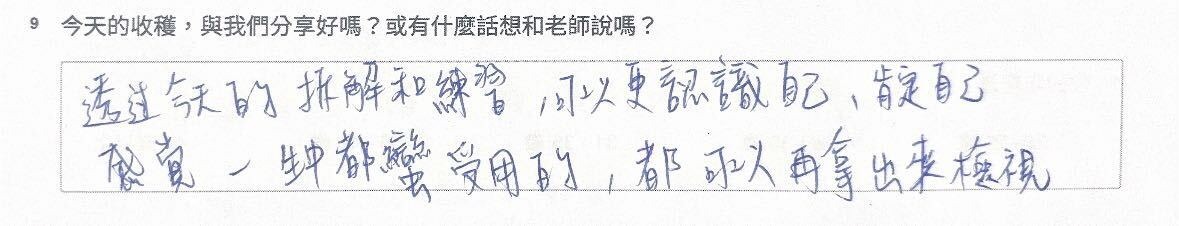 9 今天的收穫，與我們分享好嗎？或有什麼話想和老師說嗎？
透過今天的拆解和練習，可以更認識自己、肯定自己
感覺一生中都蠻受用的，都可以再拿出來檢視